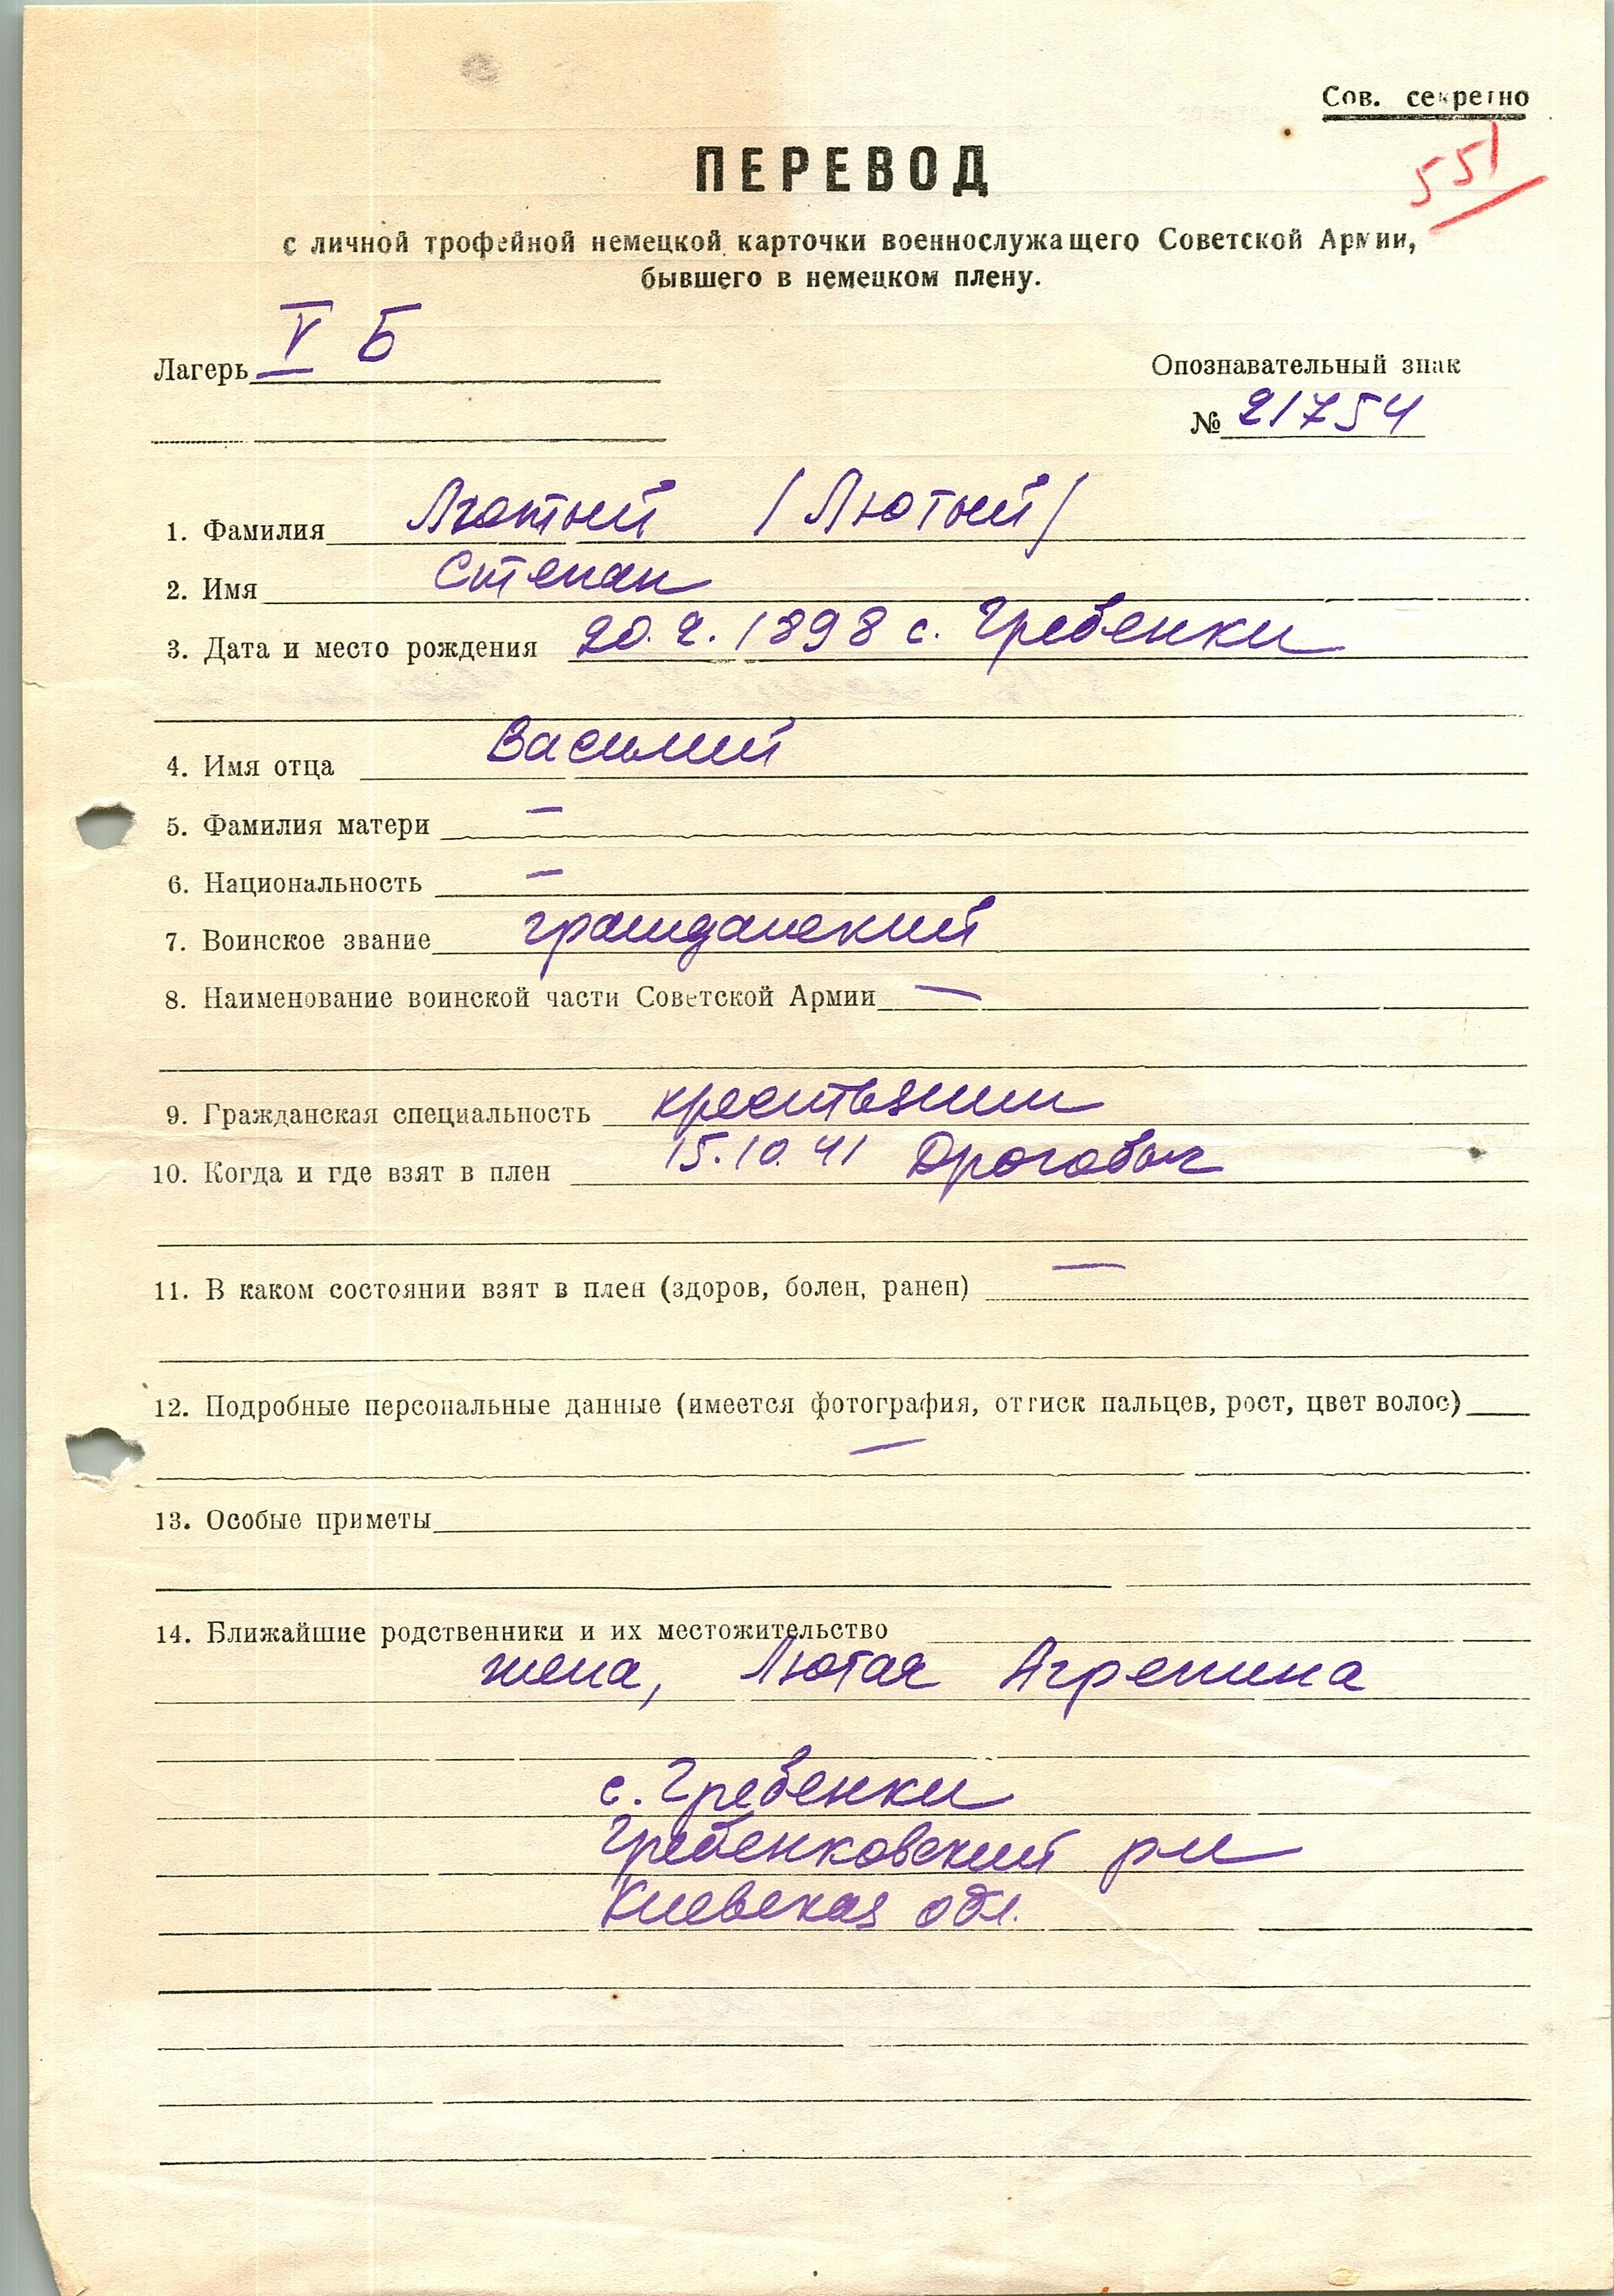 Сов. секретно
551
ПЕРЕВОД
с личной трофейной немецкой карточки военнослужащего Советской Армии,
бывшего в немецком плену.
Лагерь V Б
Опознавательный знак
№ 21754
1. Фамилия Лютый /Лютый/
2. Имя Степан
3. Дата и место рождения 20.2.1898 с. Гребенки
4. Имя отца Василий
5. Фамилия матери —
6. Национальность —
7. Воинское звание гражданский
8. Наименование воинской части Советской Армии —
9. Гражданская специальность крестьянин
10. Когда и где взят в плен 15.10.41 Дрогобыч
11. В каком состоянии взят в плен (здоров, болен, ранен) —
12. Подробные персональные данные (имеется фотография, оттиск пальцев, рост, цвет волос)
—
13. Особые приметы
14. Ближайшие родственники и их местожительство
жена, Лютая Агрепина
с. Гребенки
Гребенковский р-н
Киевская обл.